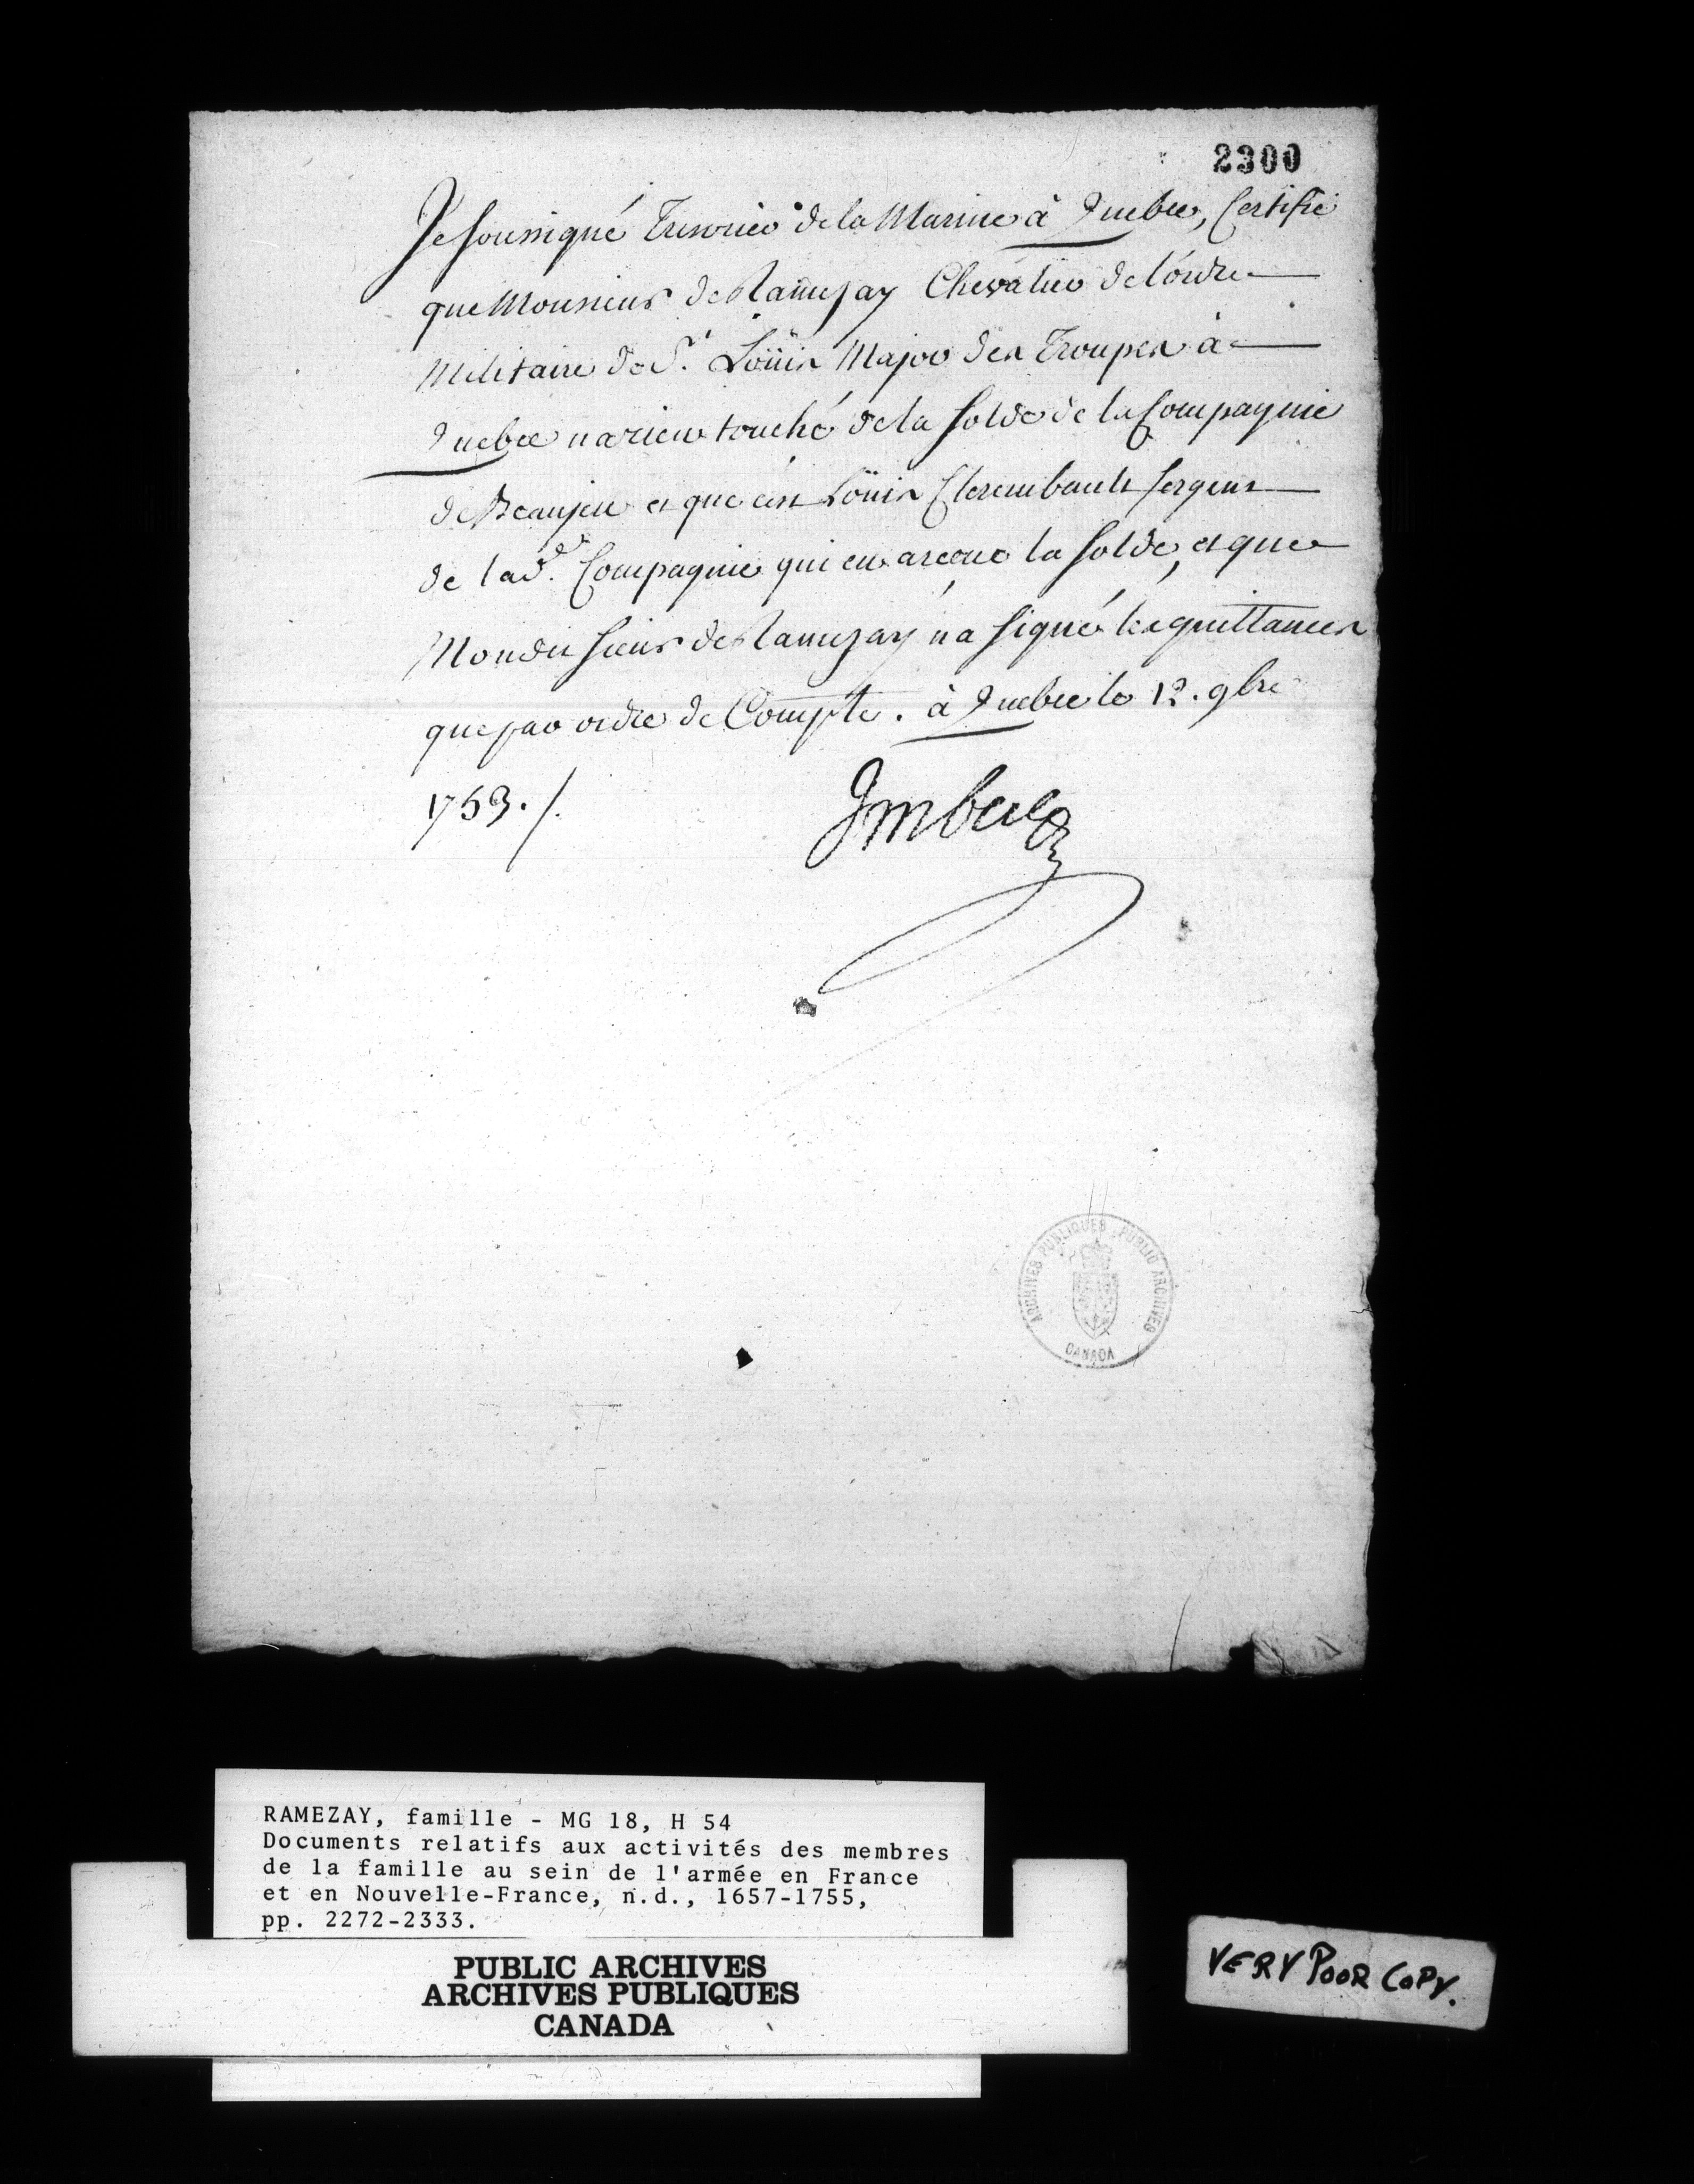 2300
Je soussigné Tresorier de la Marine à Quebec, Certifie
que Monsieur de Ramezay Chevalier de l'ordre
Militaire de St. Loüis Major des Troupes à
Quebec n'a rien touché de la solde de la Compagnie
de Beaujeu et que c'est Loüis Clerembault sergent
de lad. Compagnie qui en a reçue la solde, et que
Mondit sieur de Ramezay n'a signé les quittances
que par ordre de Compte. à Quebec le 12. 9bre
1753. /.
Imbert
ARCHIVES PUBLIQUES PUBLIC ARCHIVES
CANADA
RAMEZAY, famille - MG 18, H 54
Documents relatifs aux activités des membres
de la famille au sein de l'armée en France
et en Nouvelle-France, n.d., 1657-1755,
pp. 2272-2333.
PUBLIC ARCHIVES
ARCHIVES PUBLIQUES
CANADA
VERY POOR COPY.